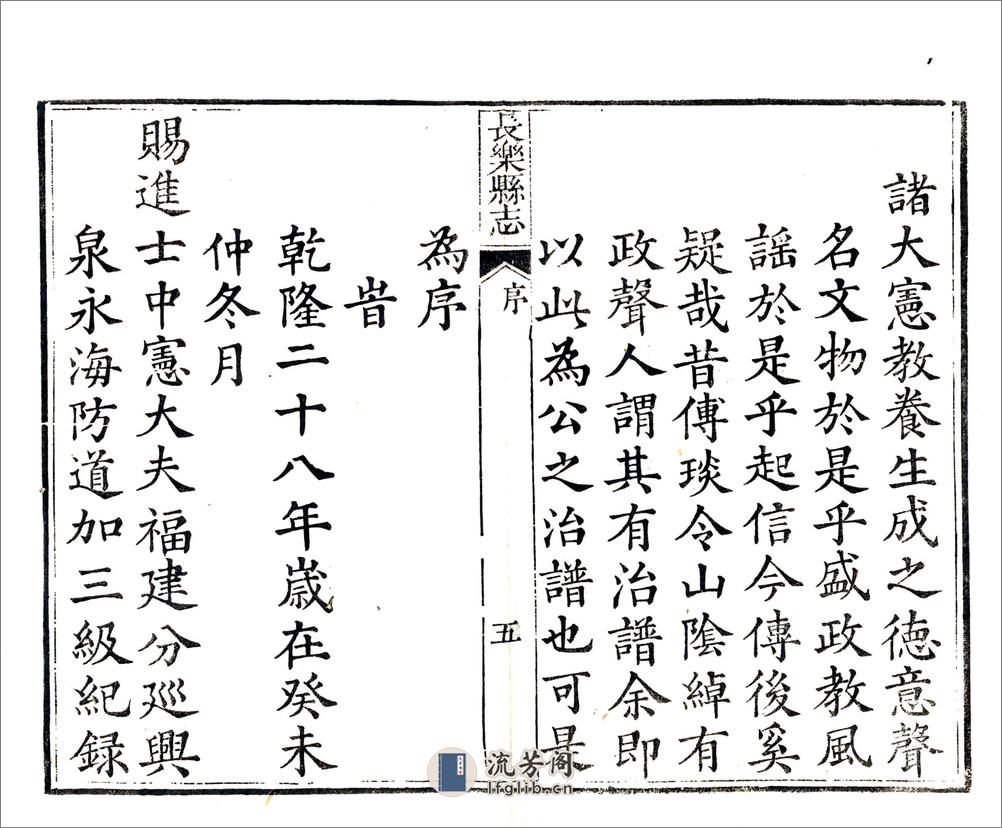 諸大憲教養生成之德意聲
名文物於是乎盛政教風
謠於是乎起信今傳後奚
疑哉昔傅琰令山陰綽有
政聲人謂其有治譜余即
以此為公之治譜也可是
長樂縣志
序
五
為序
旹
乾隆二十八年嵗在癸未
仲冬月
賜進士中憲大夫福建分廵興
泉永海防道加三級紀録
流芳阁
lfglib.cn